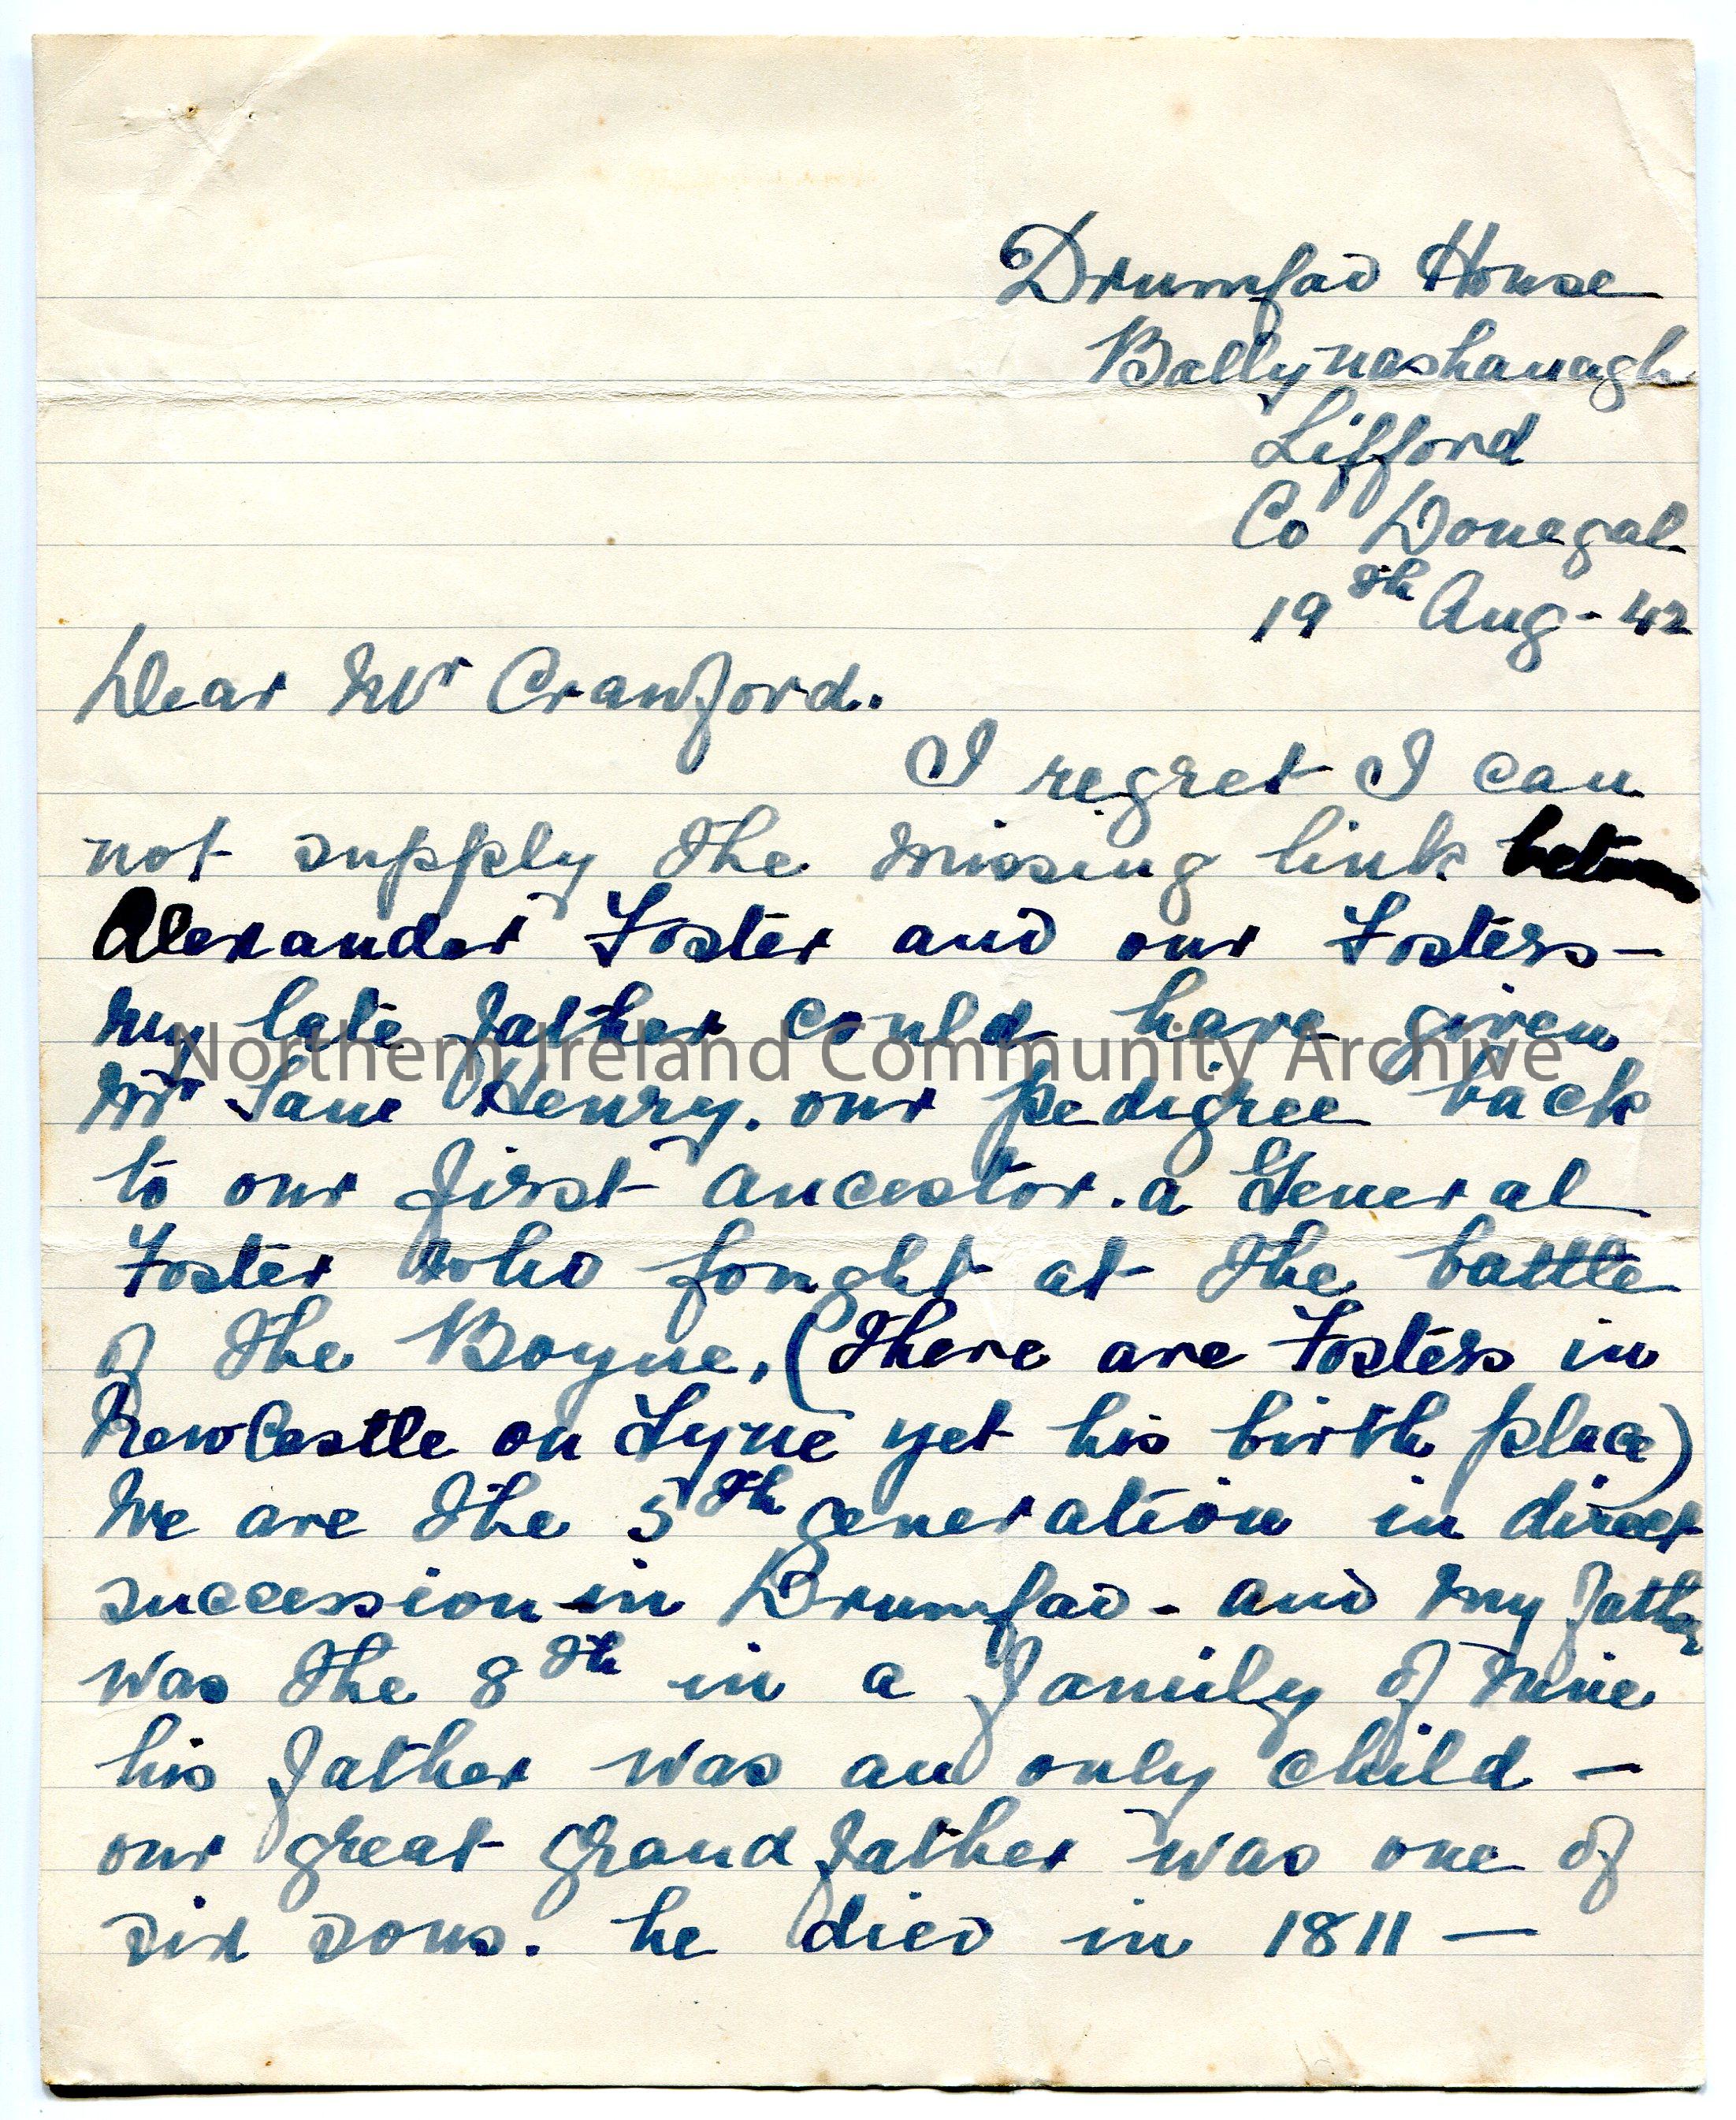 Drumfad House
Ballynashanagh
Lifford
Co Donegal
19th Aug - 42
Dear Mr Crawford.
I regret I can
not supply the missing link
Alexander Foster and our Fosters -
my late father could have given
Northern Ireland Community Archive
Mr Sam Henry. our pedigree back
to our first ancestor. a General
Foster who fought at the battle
of the Boyne, (there are Fosters in
NewCastle on Tyne yet his birth place)
We are the 5th generation in direct
succession in Drumfad - and my father
was the 8th in a family of nine
his father was an only child -
our great grand father was one of
six sons. he died in 1811 -